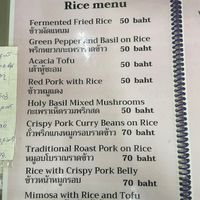 Rice menu
Fermented Fried Rice 50 baht
ข้าวผัดแหนม
Green Pepper and Basil on Rice
พริกหยวกกะเพราราดข้าว 50 baht
Acacia Tofu 50 baht
เต้าหู้ชะอม
Red Pork with Rice 50 baht
ข้าวหมูแดง
Holy Basil Mixed Mushrooms
กะเพราเห็ดรวมพริกสด 50 baht
Crispy Pork Curry Beans on Rice
ถั่วพริกแกงหมูกรอบราดข้าว 70 baht
Traditional Roast Pork on Rice
หมูอบโบราณราดข้าว 70 baht
Rice with Crispy Pork Belly
ข้าวหน้าหมูกรอบ 70 baht
Mimosa with Rice and Tofu